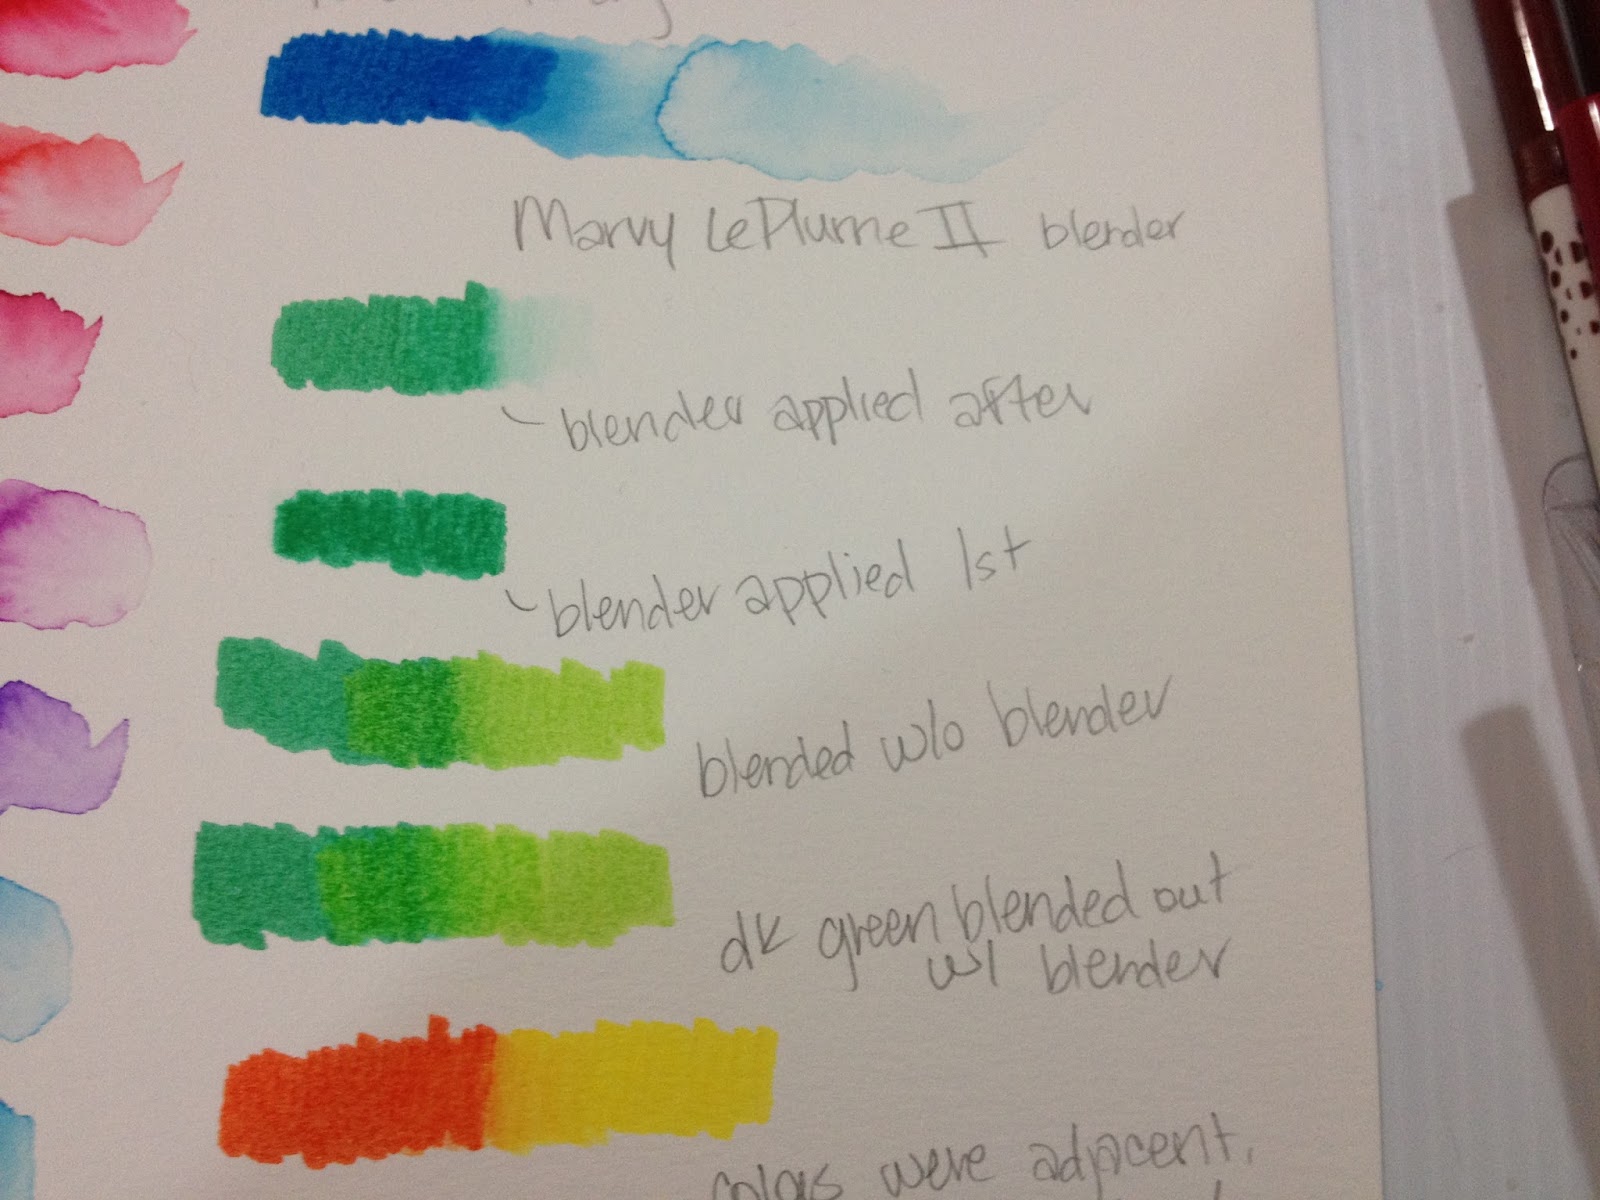 Marvy LePlume II blender
blender applied after
blender applied 1st
blended w/o blender
dk green blended out
w/ blender
colors were adjacent,